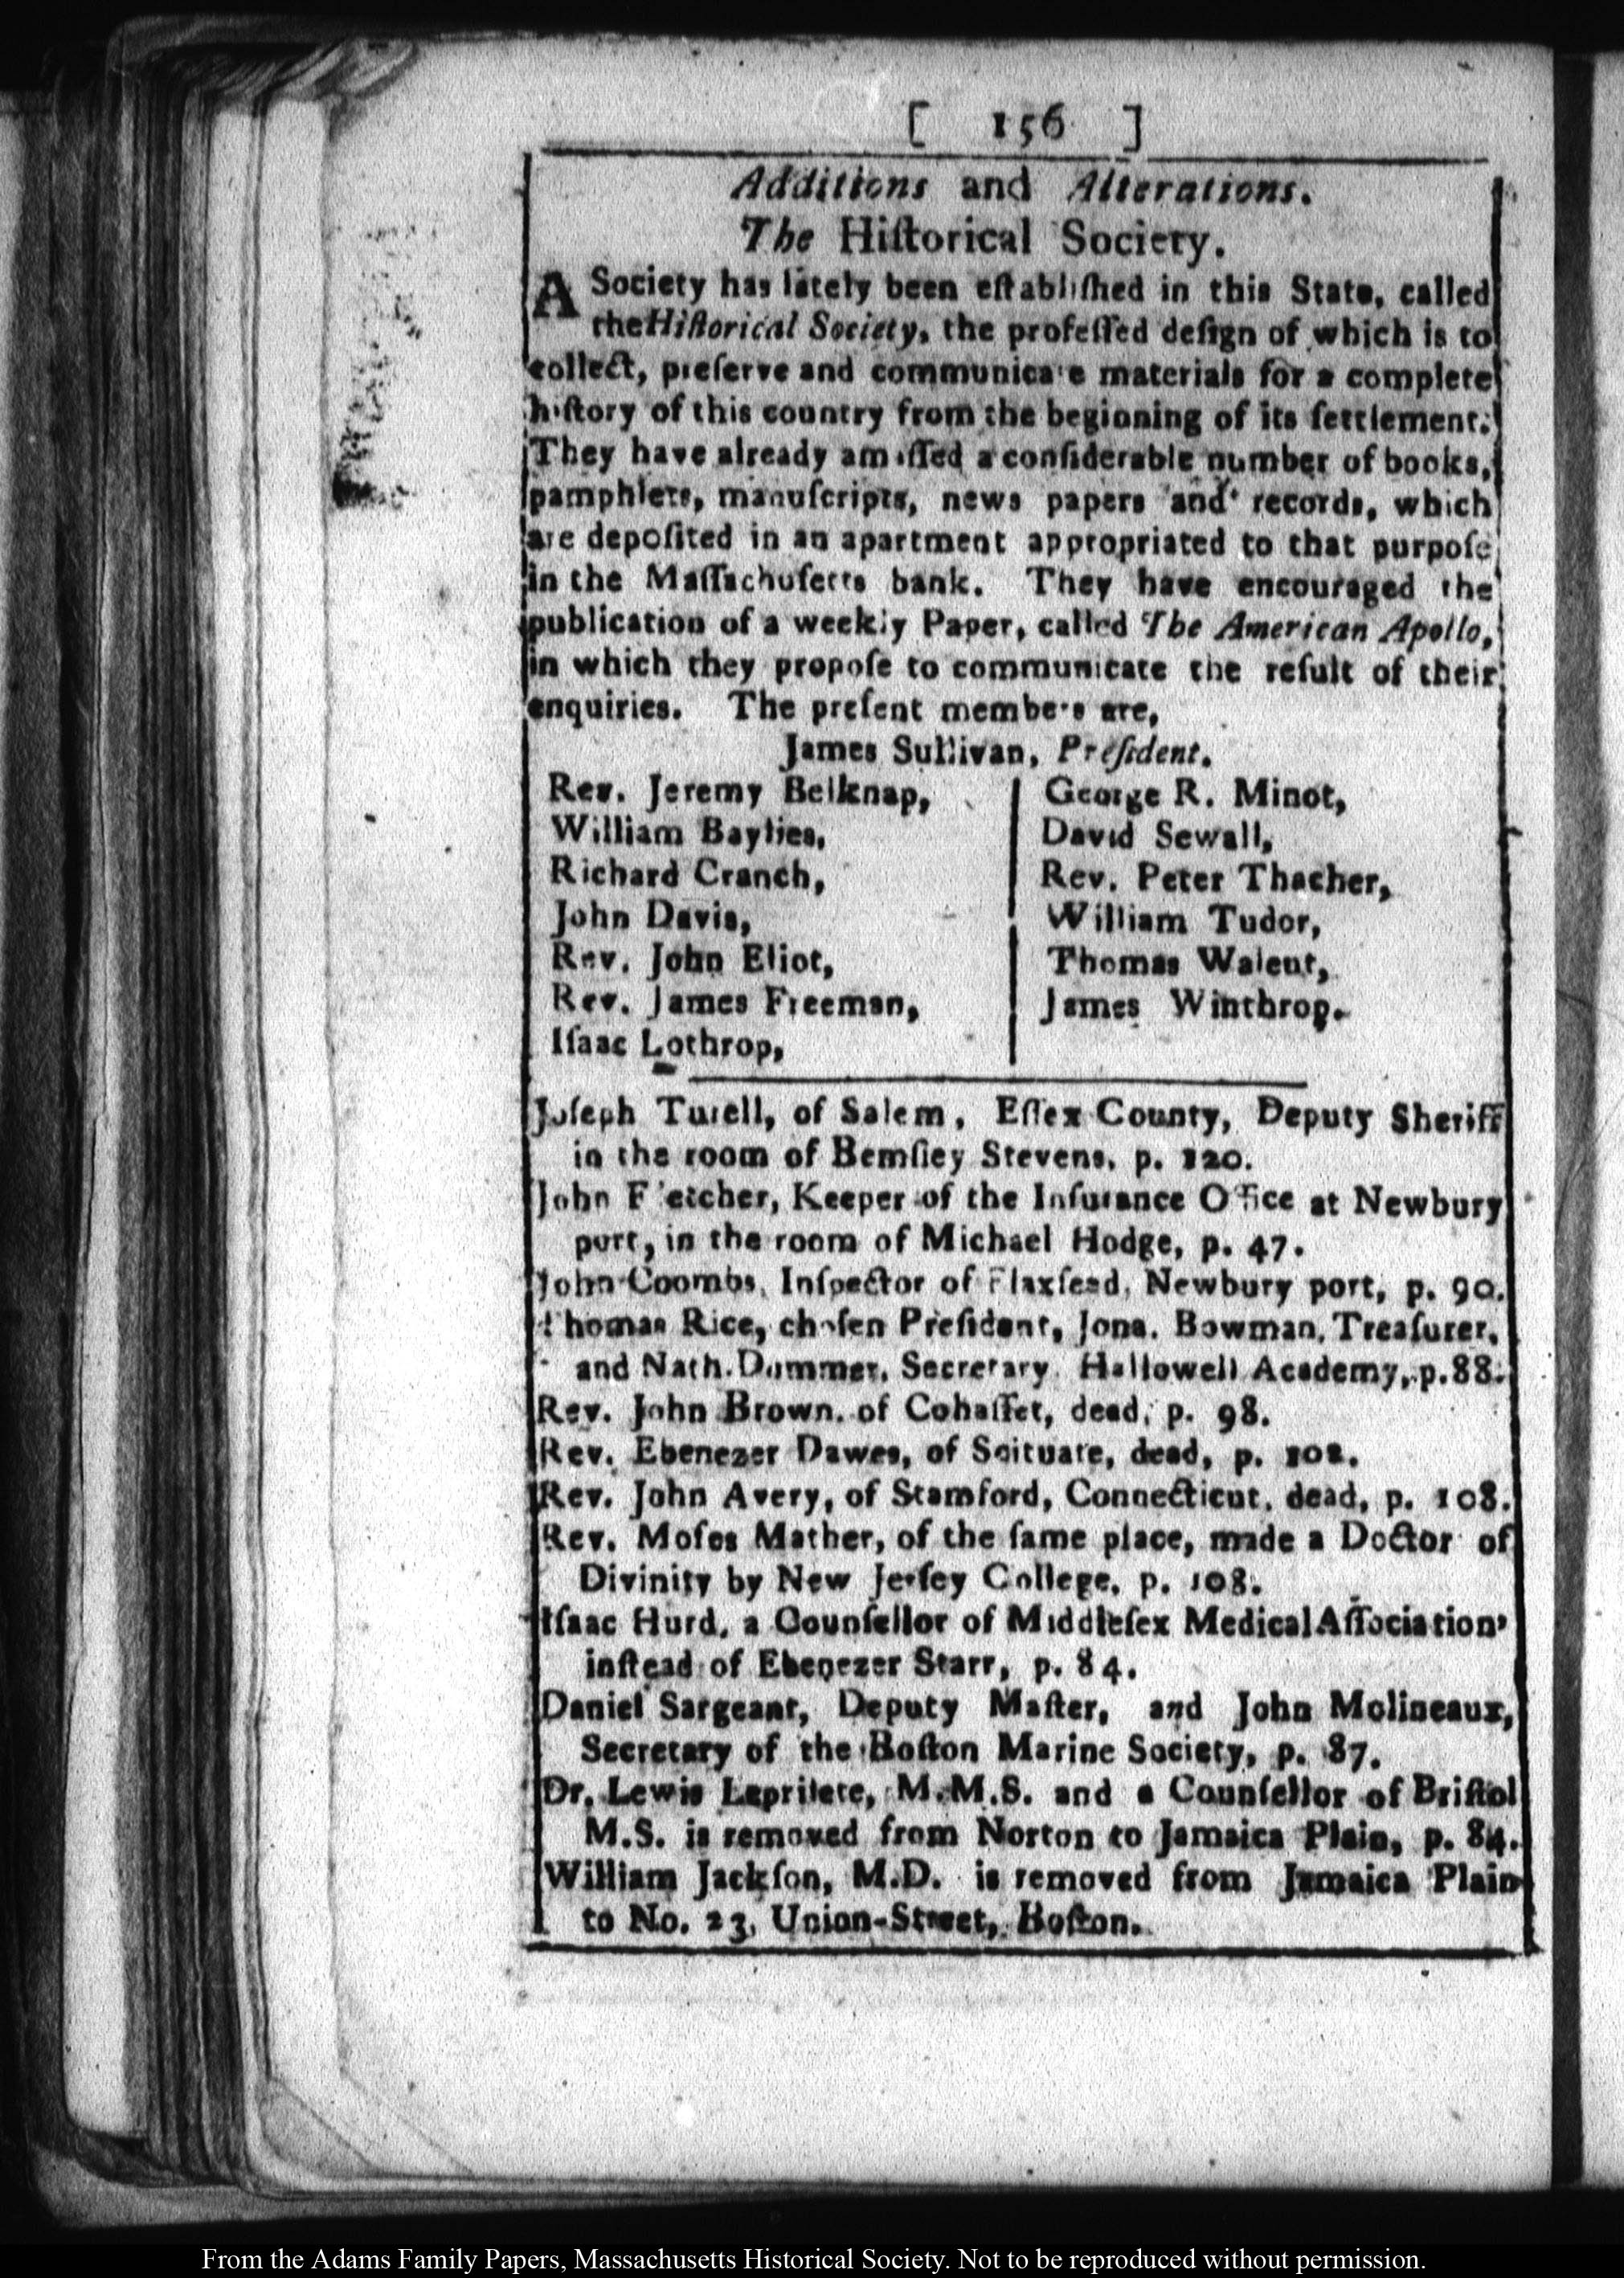 [ 156 ]
Additions and Alterations.
The Hiſtorical Society.
A Society has lately been eſtabliſhed in this State, called
the Hiſtorical Society, the profeſſed deſign of which is to
collect, preſerve and communicate materials for a complete
hiſtory of this country from the beginning of its ſettlement.
They have already amaſſed a conſiderable number of books,
pamphlets, manuſcripts, news papers and records, which
are depoſited in an apartment appropriated to that purpoſe
in the Maſſachuſetts bank. They have encouraged the
publication of a weekly Paper, called The American Apollo,
in which they propoſe to communicate the reſult of their
enquiries. The preſent members are,
James Sullivan, Preſident.
Rev. Jeremy Belknap,
William Baylies,
Richard Cranch,
John Davis,
Rev. John Eliot,
Rev. James Freeman,
Iſaac Lothrop,
George R. Minot,
David Sewall,
Rev. Peter Thacher,
William Tudor,
Thomas Walcut,
James Winthrop.
Joſeph Turell, of Salem, Eſſex County, Deputy Sheriff
in the room of Bemſley Stevens, p. 120.
John Fletcher, Keeper of the Inſurance Office at Newbury
port, in the room of Michael Hodge, p. 47.
John Coombs, Inſpector of Flaxſeed, Newbury port, p. 90.
Thomas Rice, choſen Preſident, Jona. Bowman, Treaſurer,
and Nath. Dummer, Secretary Hallowell Academy, p. 88.
Rev. John Brown, of Cohaſſet, dead, p. 98.
Rev. Ebenezer Dawes, of Scituate, dead, p. 102.
Rev. John Avery, of Stamford, Connecticut, dead, p. 108.
Rev. Moſes Mather, of the ſame place, made a Doctor of
Divinity by New Jerſey College, p. 108.
Iſaac Hurd, a Counſellor of Middleſex Medical Aſſociation,
inſtead of Ebenezer Starr, p. 84.
Daniel Sargeant, Deputy Maſter, and John Molineaux,
Secretary of the Boſton Marine Society, p. 87.
Dr. Lewis Leprilete, M.M.S. and a Counſellor of Briſtol
M.S. is removed from Norton to Jamaica Plain, p. 84.
William Jackſon, M.D. is removed from Jamaica Plain
to No. 23, Union-Street, Boſton.
From the Adams Family Papers, Massachusetts Historical Society. Not to be reproduced without permission.